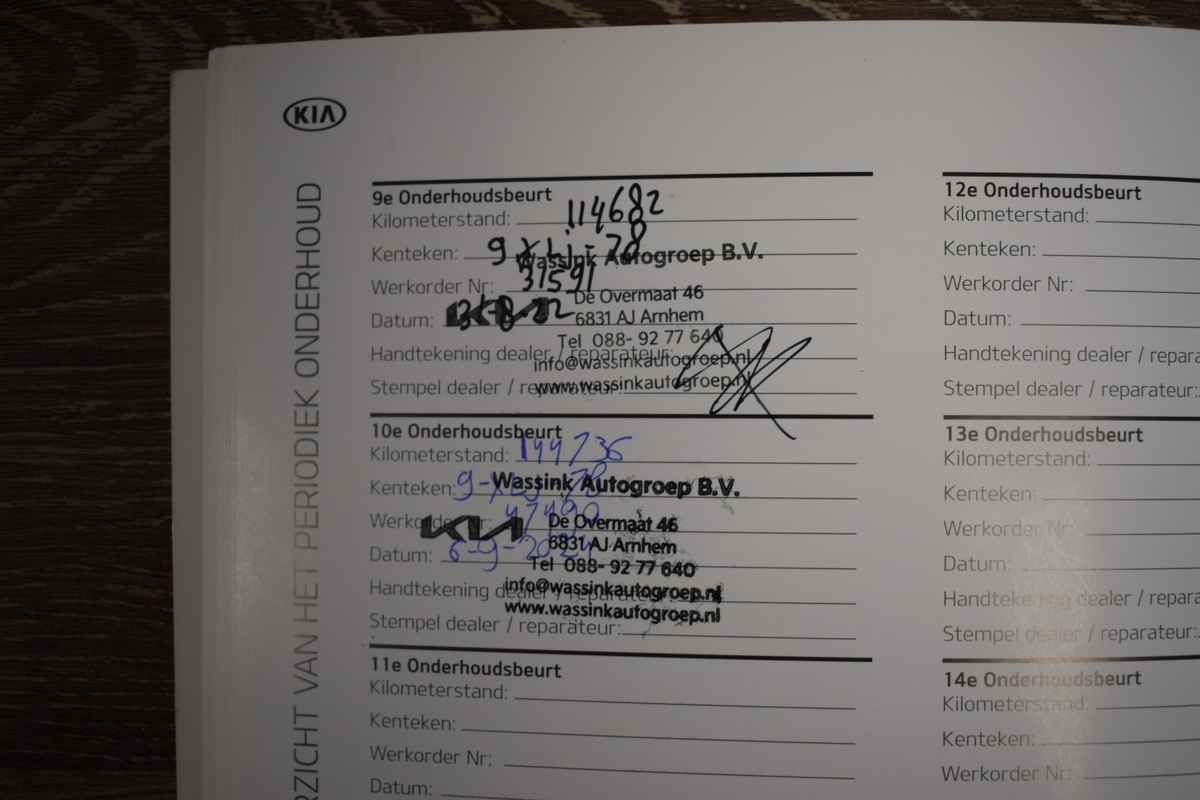 KIA
OVERZICHT VAN HET PERIODIEK ONDERHOUD
9e Onderhoudsbeurt
Kilometerstand: 114682
Kenteken: 9
Wassink Autogroep B.V.
Werkorder Nr: 31591
De Overmaat 46
Datum:
6831 AJ Arnhem
Tel 088- 92 77 640
Handtekening dealer / reparateur:
info@wassinkautogroep.nl
Stempel dealer / reparateur:
www.wassinkautogroep.nl
10e Onderhoudsbeurt
Kilometerstand: 144736
Kenteken:
Wassink Autogroep B.V.
Werkorder Nr: 47490
KIA
De Overmaat 46
6831 AJ Arnhem
Datum: 6-9-2024
Tel 088- 92 77 640
Handtekening dealer / reparateur:
info@wassinkautogroep.nl
www.wassinkautogroep.nl
Stempel dealer / reparateur:
11e Onderhoudsbeurt
Kilometerstand:
Kenteken:
Werkorder Nr:
Datum:
12e Onderhoudsbeurt
Kilometerstand:
Kenteken:
Werkorder Nr:
Datum:
Handtekening dealer / repara
Stempel dealer / reparateur:
13e Onderhoudsbeurt
Kilometerstand:
Kenteken:
Werkorder Nr:
Datum:
Handtekening dealer / repara
Stempel dealer / reparateur:
14e Onderhoudsbeurt
Kilometerstand:
Kenteken:
Werkorder Nr: